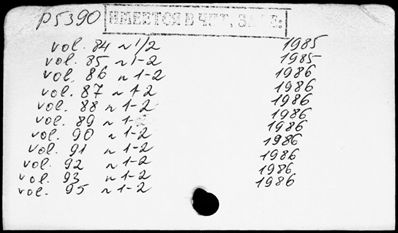 P5390 ИМЕЕТСЯ В ЧИТ. ЗАЛЕ
vol. 84 n 1/2 1985
vol. 85 n 1-2 1985
vol. 86 n 1-2 1986
vol. 87 n 1-2 1986
vol. 88 n 1-2 1986
vol. 89 n 1- 1986
vol. 90 n 1-2 1986
vol. 91 n 1-2 1986
vol. 92 n 1-2 1986
vol. 93 n 1-2 1986
vol. 95 n 1-2 1986